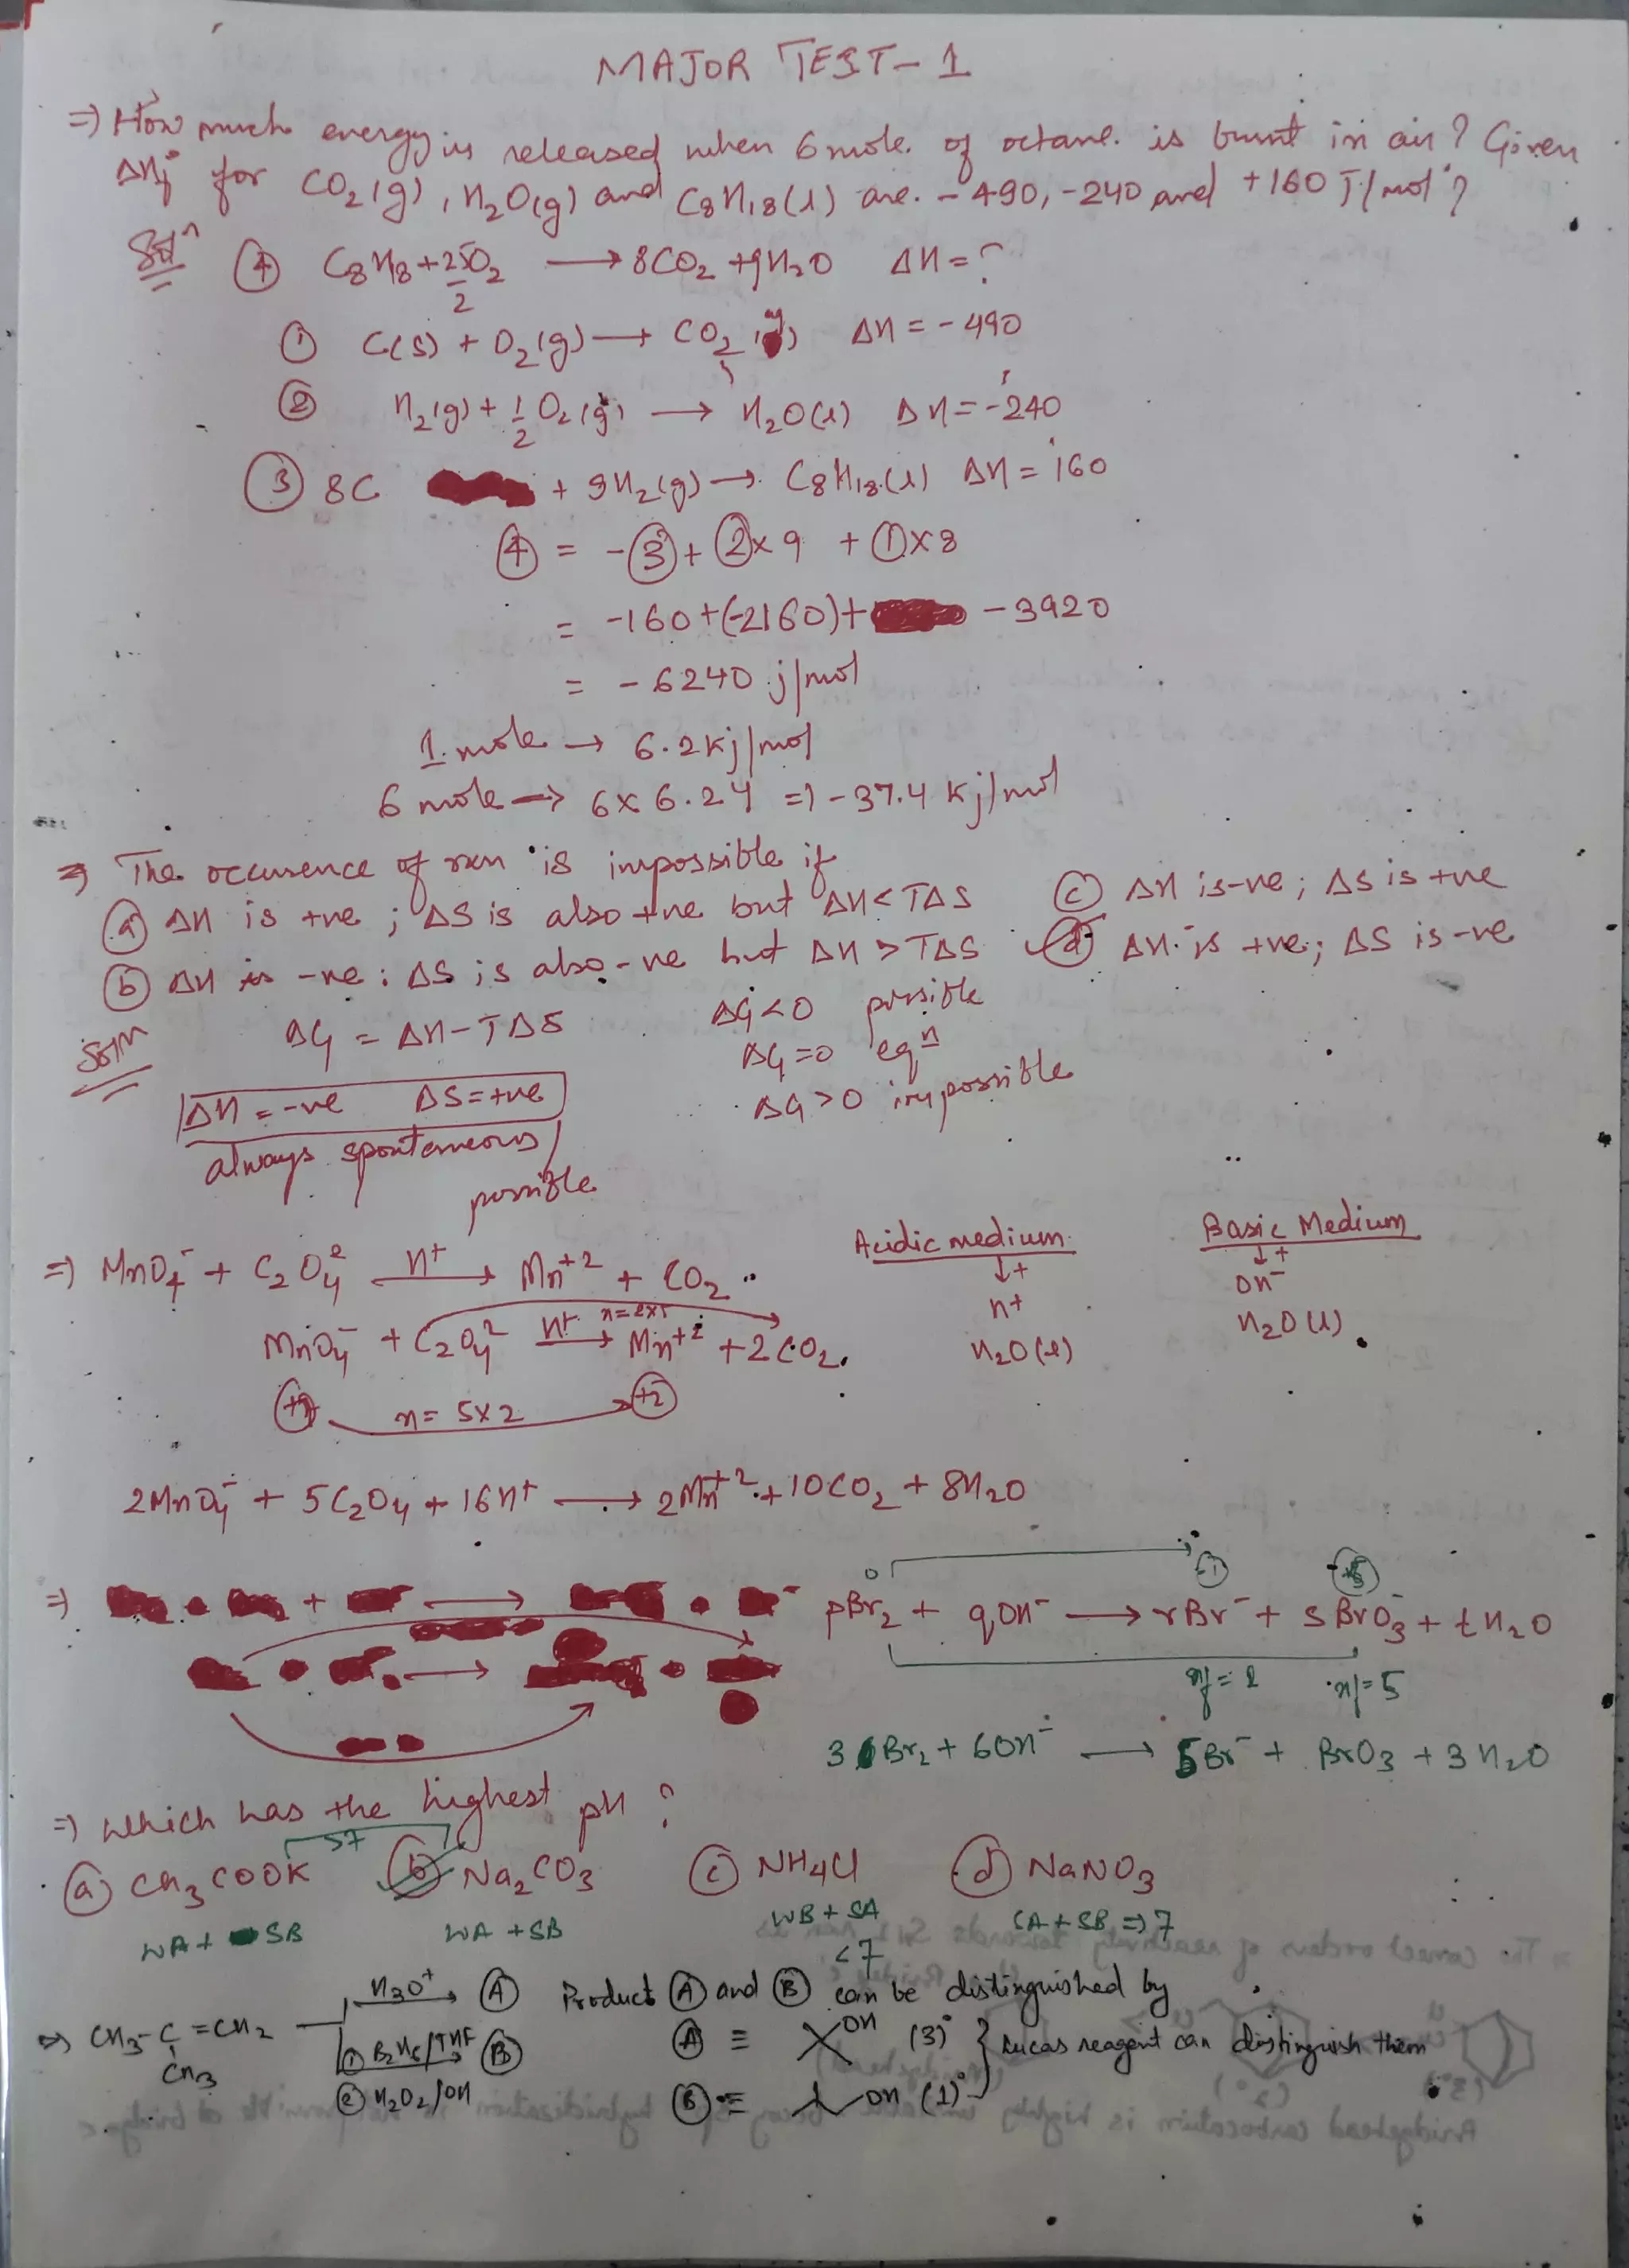 MAJOR TEST-1
=> How much energy is released when 6 mole of octane is burnt in air? Given
ΔHf° for CO2(g), H2O(g) and C8H18(l) are -490, -240 and +160 J/mol?
Solⁿ ④ C8H18 + 25/2 O2 → 8CO2 + 9H2O ΔH = ?
① C(s) + O2(g) → CO2(g) ΔH = -490
② H2(g) + 1/2 O2(g) → H2O(l) ΔH = -240
③ 8C + 9H2(g) → C8H18(l) ΔH = 160
④ = -③ + ②x9 + ①x8
= -160+(-2160)+ -3920
= -6240 j/mol
1 mole → 6.2 Kj/mol
6 mole → 6x6.24 => -37.4 Kj/mol
=> The occurence of rxn is impossible if
(a) ΔH is +ve ; ΔS is also +ve but ΔH < TΔS (c) ΔH is -ve ; ΔS is +ve
(b) ΔH is -ve : ΔS is also -ve but ΔH > TΔS (d) ΔH is +ve ; ΔS is -ve
Solⁿ ΔG = ΔH - TΔS ΔG<0 possible
ΔG=0 eqⁿ
ΔH = -ve ΔS = +ve ΔG>0 impossible
always spontaneous/
possible
=> MnO4⁻ + C2O4² H⁺→ Mn⁺² + CO2 Acidic medium Basic Medium
↓+ ↓+
H+ OH⁻
n=2x1
MnO4⁻ + C2O4² H⁺→ Mn⁺² + 2CO2 H2O(l) H2O(l)
+7 n = 5x2 +2
2MnO4⁻ + 5C2O4 + 16H⁺ → 2Mn⁺² + 10CO2 + 8H2O
0 -1 +5
=> pBr2 + qOH⁻ → rBr⁻ + sBrO3⁻ + tH2O
nf = 1 nf = 5
3Br2 + 6OH⁻ → 5Br⁻ + BrO3 + 3H2O
=> Which has the highest pH ?
>7
(a) CH3COOK (b) Na2CO3 (c) NH4Cl (d) NaNO3
WA + SB WA + SB WB + SA SA + SB => 7
<7
=> CH3-C=CH2 H3O⁺→ (A) Product (A) and (B) can be distinguished by
CH3 ① B2H6/THF (B) (A) ≡ OH (3)° } Lucas reagent can distinguish them
② H2O2/OH (B) ≡ OH (1)°